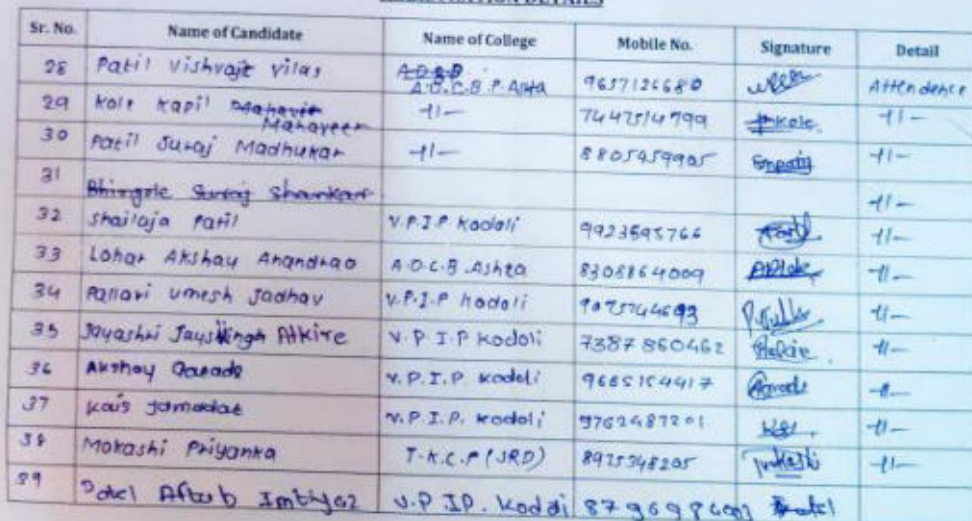 Sr. No. Name of Candidate Name of College Mobile No. Signature Detail
28 Patil Vishvajit Vilas A.D.C.B.P. Ashta 9657126680 Attendence
29 Kole Kapil Mahaveer -11- 7447514799 Kole -11-
30 Patil Suraj Madhukar -11- 8805459905 -11-
31 Bhingole Suraj Shankar -11-
32 Shailaja Patil V.P.I.P Kodoli 9923595766 -11-
33 Lohar Akshay Anandrao A.D.C.B. Ashta 8308864009 -11-
34 Pallavi Umesh Jadhav V.P.I.P Kodoli -11-
35 Jayashri Jaysingh Atkire V.P.I.P Kodoli 7387860462 -11-
36 Akshay Garade V.P.I.P. Kodoli 9665154417 -11-
37 Kais Jamadar V.P.I.P. Kodoli 9762487201 -11-
38 Mokashi Priyanka T.K.C.P (JRD) 8975348205 -11-
39 Patel Aftab Imtiyaz V.P.IP. Kodoli